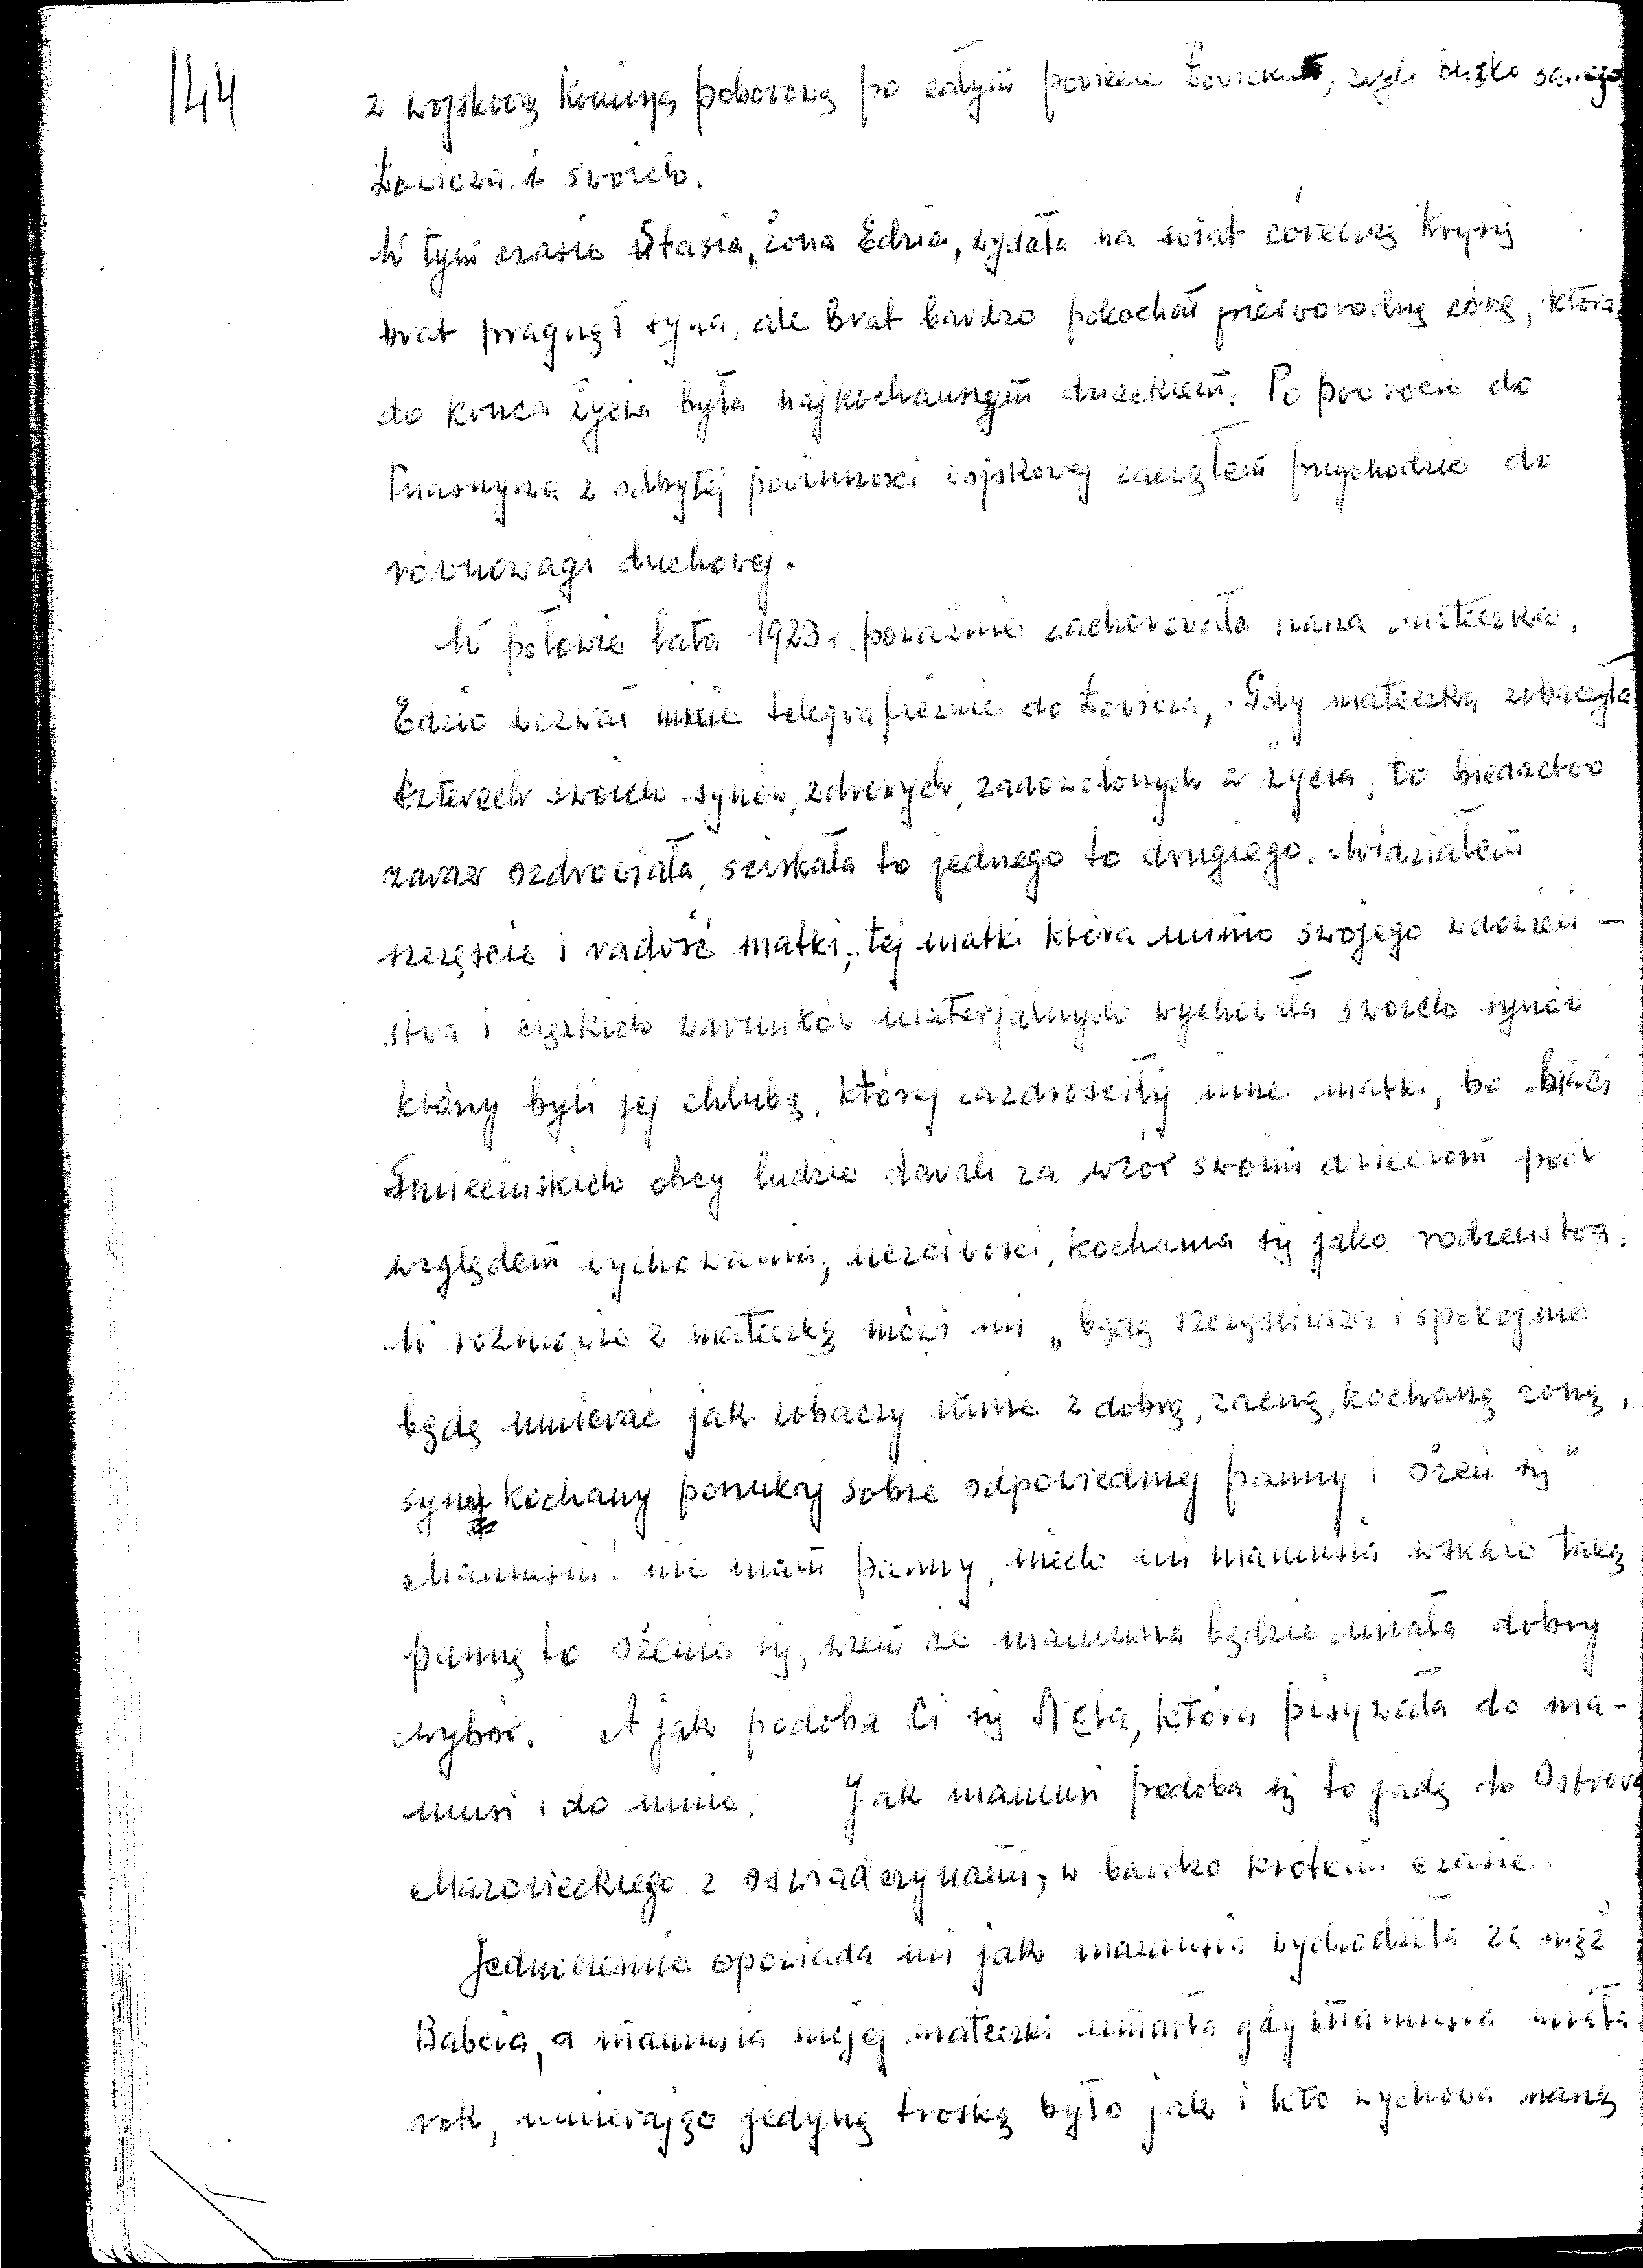 144
z wojskową komisją poborową po całym powiecie Łowickim, czyli blizko samego
Łowicza i swoich.
W tym czasie Stasia, żona Edzia, wydała na świat córeczkę Krysię
brat pragnął syna, ale brat bardzo pokochał pierworodną córę, która
do końca życia była najkochańszym dzieckiem. Po powrocie do
Przasnysza z odbytej powinności wojskowej zacząłem przychodzić do
równowagi duchowej.
W połowie lata 1923 r. poważnie zachorowała nasza mateczka.
Edzio wezwał mnie telegraficznie do Łowicza, Gdy mateczka zobaczyła
czterech swoich synów, zdrowych, zadowolonych z życia, to biedactwo
zaraz ozdrowiała, ściskała to jednego to drugiego. Widziałem
szczęście i radość matki, tej matki która mimo swojego wdowień-
stwa i ciężkich warunków materjalnych wychowała swoich synów
którzy byli jej chlubą, której zazdrościły inne matki, bo braci
Śmiecińskich obcy ludzie dawali za wzór swoim dzieciom pod
względem wychowania, uczciwości, kochania się jako rodzeństwa.
W rozmowie z mateczką mówi mi „będę szczęśliwsza i spokojnie
będę umierać jak zobaczy mnie z dobrą, zacną, kochaną żoną,
synu kochany poszukaj sobie odpowiedniej panny i ożeń się"
Mamusiu! nie mam panny, niech mi mamusia wskaże taką
pannę to ożenię się, wiem że mamusia będzie miała dobry
wybór. A jak podoba Ci się Nela, która pisywała do ma-
musi i do mnie. Jak mamusi podoba się to jadę do Ostrowa
Mazowieckiego z oświadczynami, w bardzo krótkim czasie.
Jednocześnie opowiada mi jak mamusia wychodziła za mąż
Babcia, a mamusia mojej mateczki umarła gdy mamusia miała
rok, umierając jedyną troską było jak i kto wychowa naszą